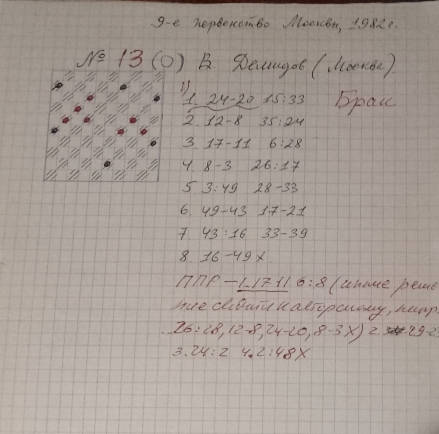 9-е первенство Москвы, 1982 г.
№ 13 (0) В Демидов (Москва)
1)
1. 24-20 15:33 Брак
2. 12-8 35:24
3. 17-11 6:28
4. 8-3 26:17
5 3:49 28-33
6. 49-43 17-21
7. 43:16 33-39
8. 16-49X
ППР — 1.1711 6:8 (иные реше
ние свести к авторскому, напр
26:28, 12-8, 24-20, 8-3X) 2. 29-2
3. 24:2 4. 2:48X